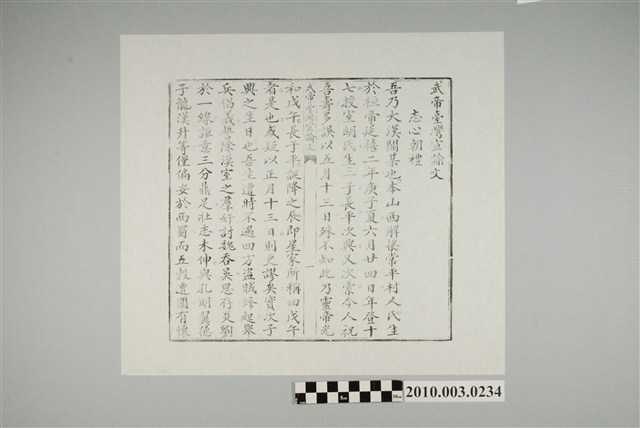 武帝臺灣宣諭文
志心朝禮
吾乃大漢關某也本山西解梁常平村人氏生
於桓帝延禧二年庚子夏六月廿四日年登十
七授室胡氏生三子長平次興又次索今人祝
吾壽多誤以五月十三日殊不知此乃靈帝光
武帝臺灣宣諭文
一
和戊午長子平誕降之辰即星家所稱四戊午
者是也或疑以正月十三日則更謬矣實次子
興之生日也吾生遭時不遇四方盜賊蜂起舉
兵倡義誓除漢室之羣奸討魏吞吳思存炎劉
於一線詎意三分鼎足壯志未伸與孔明翼德
子龍漢升等僅偏安於西蜀而五殺遭圍有懷
5cm
10cm
2010.003.0234